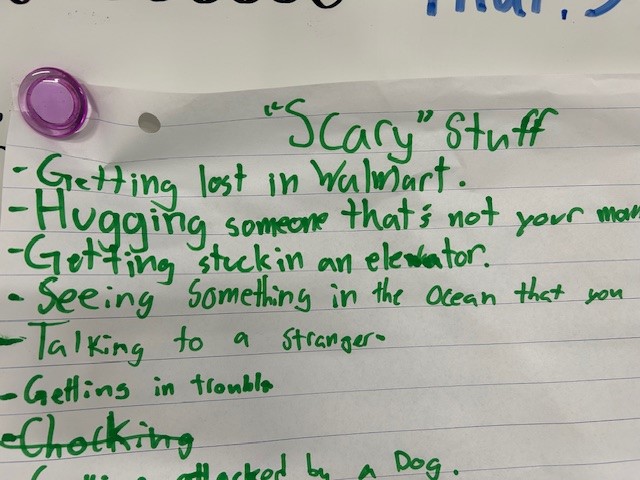 Thur. 5
"Scary" Stuff
- Getting lost in Walmart.
- Hugging someone that's not your mom
- Getting stuck in an elevator.
- Seeing Something in the Ocean that you
- Talking to a stranger.
- Getting in trouble
- Chocking
attacked by a Dog.